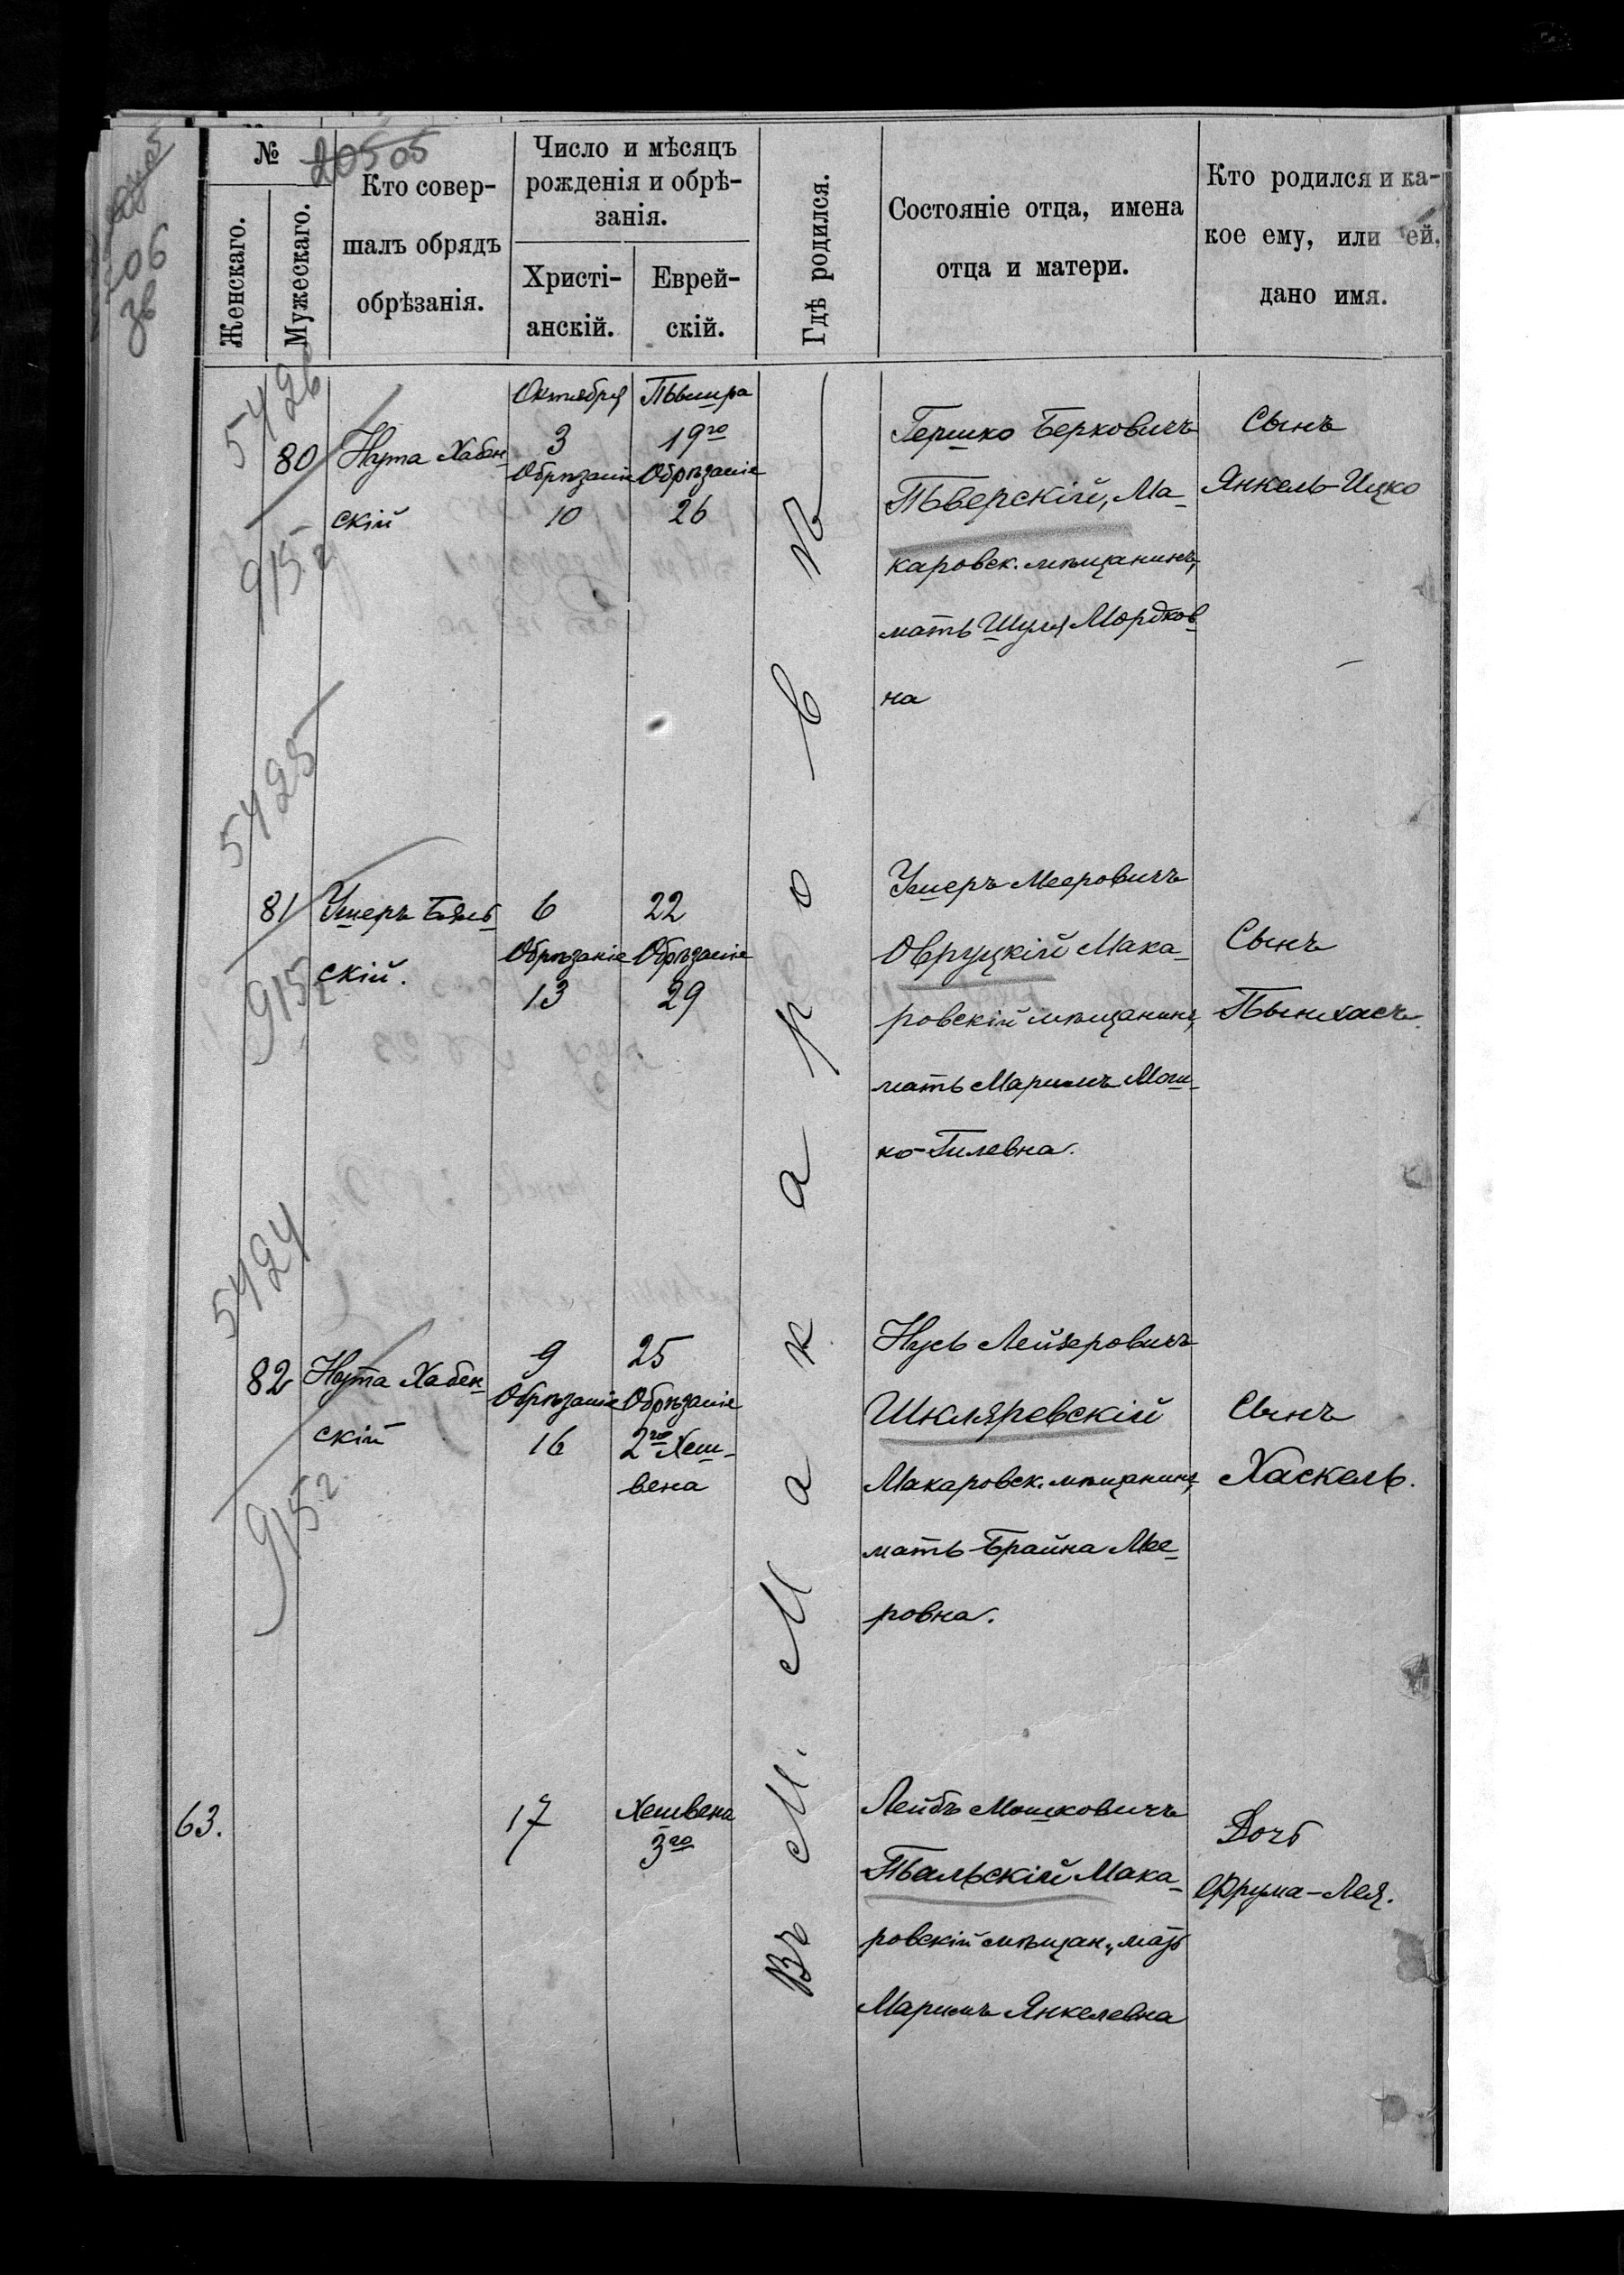 20505
06
№
Женскаго.
Мужескаго.
Кто совер-
шалъ обрядъ
обрѣзанія.
Число и мѣсяцъ
рожденія и обрѣ-
занія.
Христі-
анскій.
Еврей-
скій.
Гдѣ родился.
Состояніе отца, имена
отца и матери.
Кто родился и ка-
кое ему, или ей,
дано имя.
Въ М. Макаровѣ
5426
80
915
Нута Хабен-
скій
Октября
3
Обрѣзаніе
10
Тышра
19го
Обрѣзаніе
26
Гершко Берковичъ
Тверскій, Ма-
каровск. мѣщанинъ,
мать Шуля Мордков-
на
Сынъ
Янкель-Ицко
5425
81
915
Ушеръ Бяль-
скій.
6
Обрѣзаніе
13
22
Обрѣзаніе
29
Ушеръ Мееровичъ
Овруцкій Мака-
ровскій мѣщанинъ,
мать Маримъ Мош-
ко-Гилевна.
Сынъ
Пынхасъ.
5424
82
915
Нута Хабен-
скій
9
Обрѣзаніе
16
25
Обрѣзаніе
2го Хеш-
вена
Нусь Лейзеровичъ
Шкляревскій
Макаровск. мѣщанинъ,
мать Брайна Мее-
ровна.
Сынъ
Хаскель.
63.
17
Хешвена
3го
Лейбъ Мошковичъ
Мака-
ровскій мѣщан., мать
Маримъ Янкелевна
Дочь
Фрума-Лея.